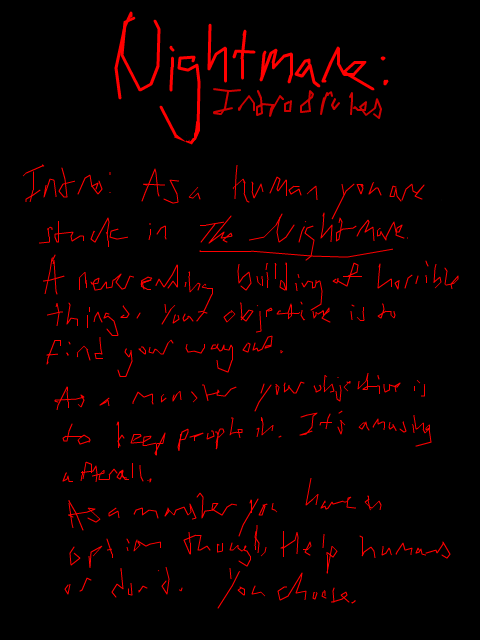 Nightmare:
Intro & rules
Intro: As a human you are
stuck in The Nightmare
A never ending building of horrible
things. Your objective is to
find your way out.
As a monster your objective is
to keep people in. It's amusing
afterall.
As a monster you have an
option though, Help humans
or don't. You choose.